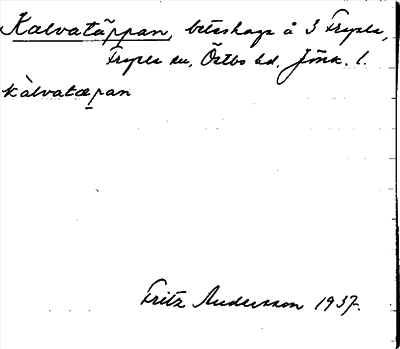 Kalvatäppan, beteshage å 3 Fryele,
Fryele sn, Östbo hd, Jönk. l.
kàlvatæpan
Fritz Andersson 1937.